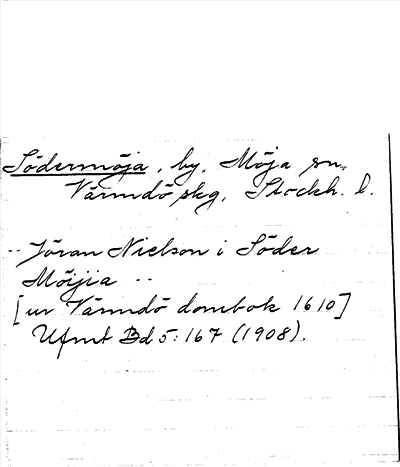 Södermöja, by, Möja sn,
Värmdö skg, Stockh. l.
-- Jöran Nielson i Söder
Möijia --
[ur Värmdö dombok 1610]
Ufmt Bd 5:167 (1908).